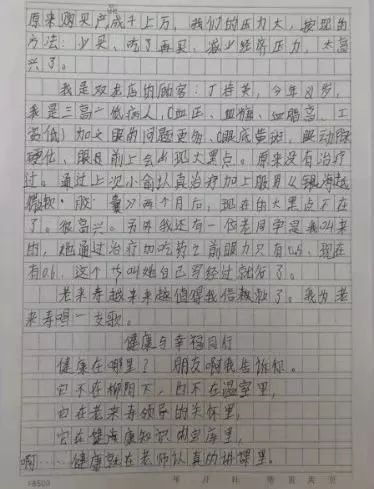 原来购买产品成千上万，我们的压力大，按现的
方法：少买、吃了再买、减少经济压力，太高
兴了。
我是双来店的顾客：丁桂英，今年8岁，
我是三高一低病人，（血压、血糖、血脂高、工
资低）加上眼的问题更多、（眼底黄斑、眼动脉
硬化、眼目前上会出现大黑点。原来没有治疗
过。通过上次小俞认真治疗加上服用《银海越
胶"囊》两个月后，现在的大黑点不在
了。很高兴。另外我还有一位老同学是我叫来
的，他通过治疗加吃药之前眼力只有0.5、现在
有0.6，这个书叫她自己写经过就行了。
老来寿越来越值得我信赖了。我为老
来寿唱一支歌。
健康与幸福同行
健康在哪里？朋友啊我告诉你。
它不在柳阴下，也不在温室里，
它在老来寿领导的关怀里，
它在健康知识的宝库里，
啊……健康就在老师认真的讲课里。
年 月 日 第 页 共 页